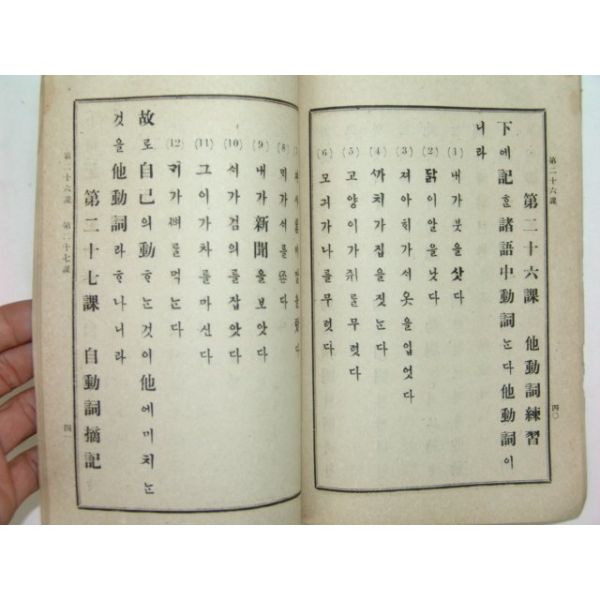 第二十六課
四〇
第二十六課 他動詞練習
下에記ᄒᆞᆫ諸語中動詞ᄂᆞᆫ다他動詞이
니라
(1) 내가붓을삿다
(2) 닭이알을낫다
(3) 져아희가서옷을입엇다
(4) ᄭᅡ치가집을짓ᄂᆞᆫ다
(5) 고양이가쥐를무럿다
(6) 모긔가나를무럿다
(8)
(9) 내가新聞을보앗다
(10) 거믜를잡앗다
(11) 그이가차를마신다
(12) 가ᄲᅧ를먹ᄂᆞᆫ다
故로自己의動ᄒᆞᄂᆞᆫ것이他에미치ᄂᆞᆫ
것을他動詞라ᄒᆞ나니라
第二十七課 自動詞摘記
第二十六課 第二十七課
四一